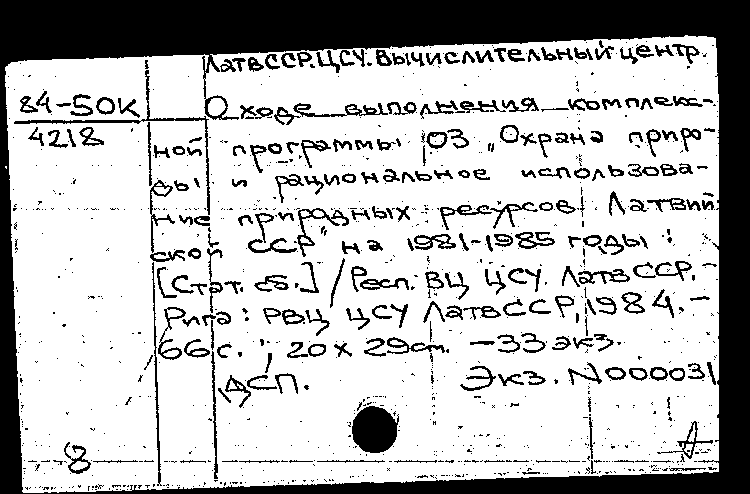 ЛатвССР. ЦСУ. Вычислительный центр.
84-50К
4218
О ходе выполнения комплекс-
ной программы 03 „Охрана приро-
ды и рациональное использова-
ние природных ресурсов Латвий-
ской ССР" на 1981-1985 годы :
[Стат. сб.] / Респ. ВЦ ЦСУ. ЛатвССР. -
Рига : РВЦ ЦСУ ЛатвССР, 1984. -
66 с. ; 20 x 29 см. - 33 экз.
ДСП. Экз. N000031
8